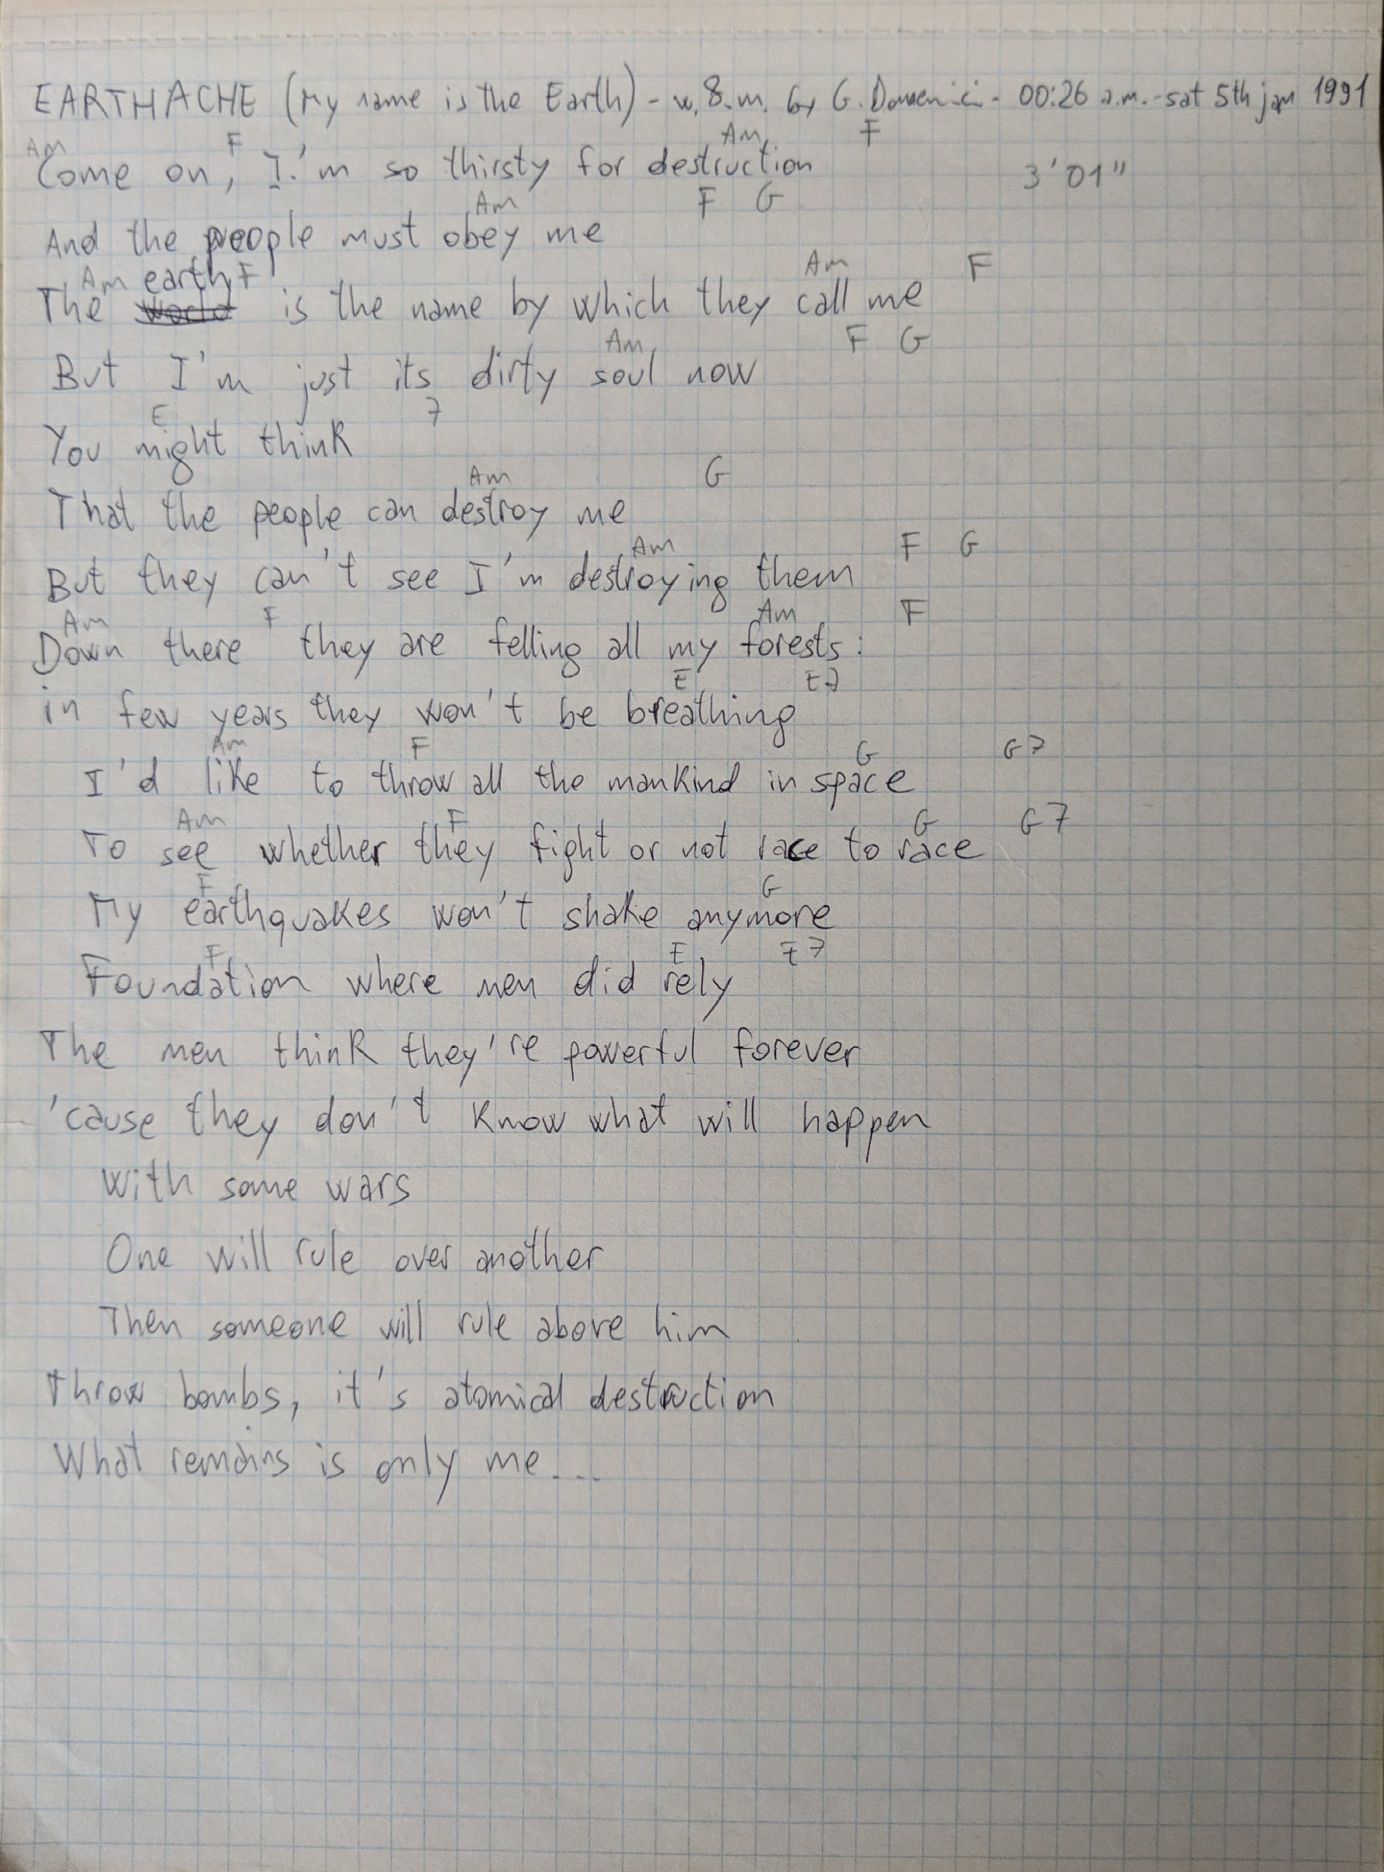 EARTHACHE (My name is the Earth) - w. & m. by G. Domenici - 00:26 a.m. - sat 5th jan 1991
Am F Am F
Come on, I'm so thirsty for destruction 3'01"
Am F G
And the people must obey me
Am earth F Am F
The world is the name by which they call me
Am F G
But I'm just its dirty soul now
E 7
You might think
Am G
That the people can destroy me
Am F G
But they can't see I'm destroying them
Am F Am F
Down there they are felling all my forests:
E E7
in few years they won't be breathing
Am F G G7
I'd like to throw all the mankind in space
Am F G G7
To see whether they fight or not race to race
F G
My earthquakes won't shake anymore
F E E7
Foundation where men did rely
The men think they're powerful forever
'cause they don't know what will happen
With some wars
One will rule over another
Then someone will rule above him
Throw bombs, it's atomical destruction
What remains is only me...